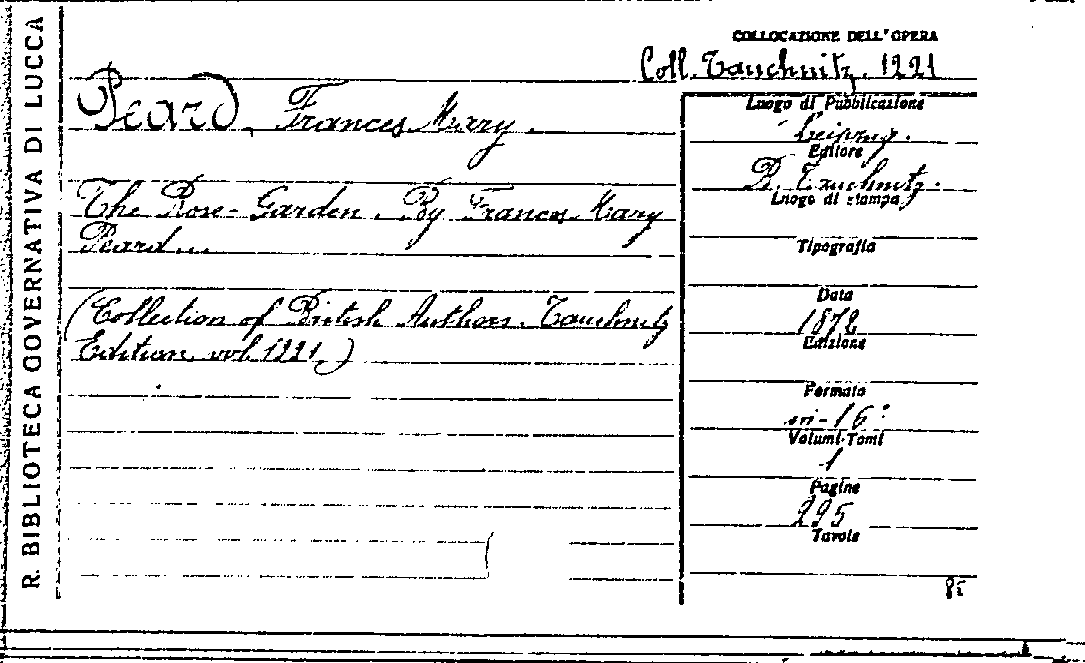 R. BIBLIOTECA GOVERNATIVA DI LUCCA
COLLOCAZIONE DELL'OPERA
Coll. Tauchnitz, 1221
Peard, Frances Mary.
The Rose-Garden. By Frances Mary
Peard...
(Collection of British Authors. Tauchnitz
Edition. vol. 1221.)
Luogo di Pubblicazione
Leipzig.
Editore
B. Tauchnitz.
Luogo di stampa
Tipografia
Data
1872
Edizione
Formato
in-16°
Volumi-Tomi
1
Pagine
295
Tavole